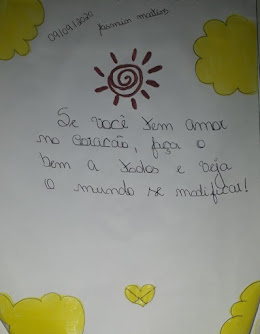 09/09/2020
Se você tem amor
no coração, faça o
bem a todos e veja
o mundo se modificar!